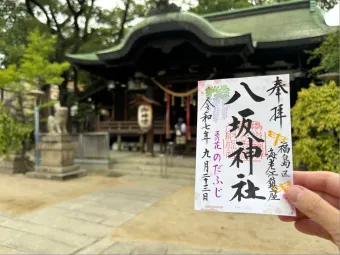 奉拝
福島区
海老江鎮座
八坂神社
令和七年 九月二十三日
のだふじ